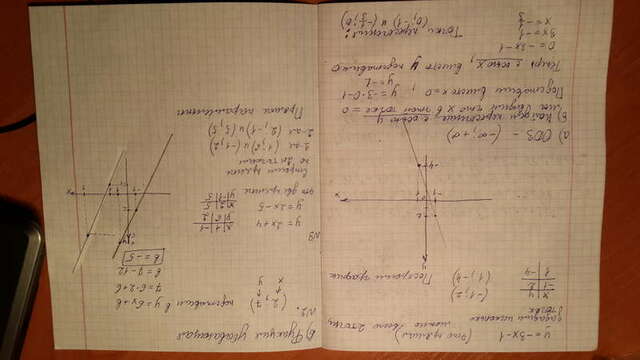 y = -3x-1 (это прямая)
зададим несколько можно всего 2 точки
точек
x | y (-1; 2)
-1 | 2
1 | -4 (1; -4)
Построим график
a) ОДЗ - (-∞; +∞)
б) Найдем пересечение с осью y
мы видим что x в этой точке = 0
Подставим вместо x=0, y=-3·0-1
y=-1
Теперь с осью x, вместо y подставим 0
0 = -3x-1
3x = -1
x = -1/3
Точки пересечения:
(0; -1) и (-1/3; 0)
в) Функция убывающая
N2.
(2, 7) подставим в y=6x+b
x y
7=6·2+b
b=7-12
b=-5
N3
y = 2x+4 x | 1 | -1
y | 6 | 2
y = 2x-5 x | 2 | 5
y | -1 | 5
это две прямые
Строим прямые
по 2м точкам
1-ая (1; 6) и (-1, 2)
2-ая (2, -1) и (5, 5)
Прямые параллельны